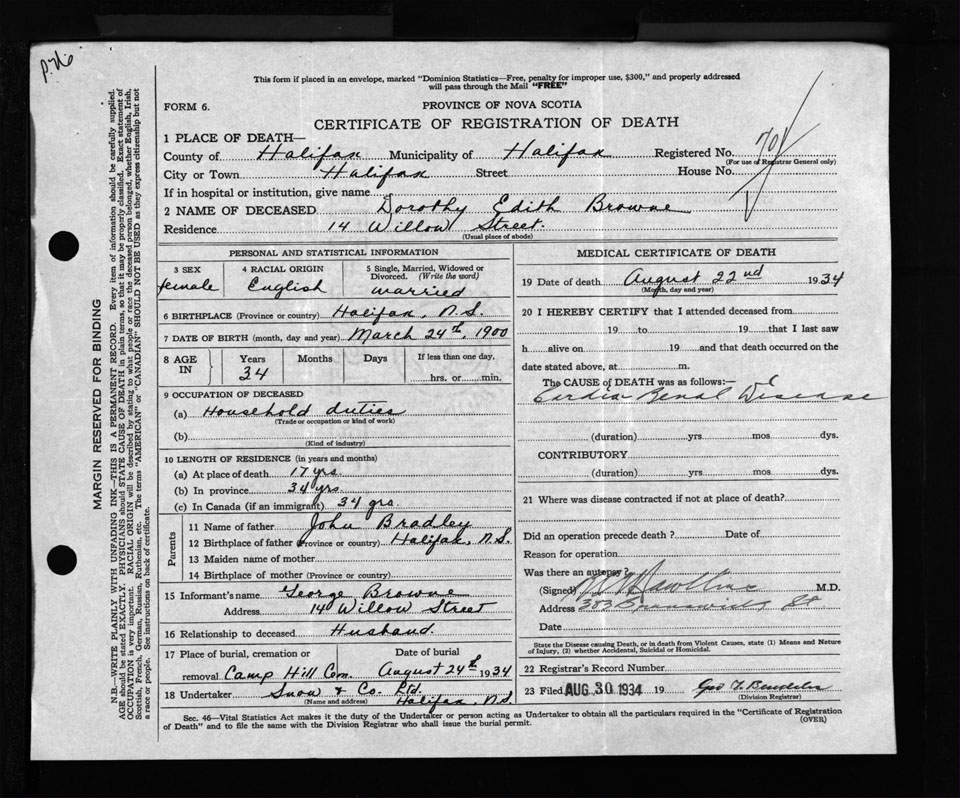 p. 716
This form if placed in an envelope, marked "Dominion Statistics—Free, penalty for improper use, $300," and properly addressed
will pass through the Mail "FREE"
FORM 6.
PROVINCE OF NOVA SCOTIA
CERTIFICATE OF REGISTRATION OF DEATH
1 PLACE OF DEATH—
County of Halifax Municipality of Halifax Registered No. 701
(For use of Registrar General only)
City or Town Halifax Street House No.
If in hospital or institution, give name
2 NAME OF DECEASED Dorothy Edith Browne
Residence 14 Willow Street.
(Usual place of abode)
PERSONAL AND STATISTICAL INFORMATION
3 SEX 4 RACIAL ORIGIN 5 Single, Married, Widowed or
Divorced. (Write the word)
female English married
6 BIRTHPLACE (Province or country) Halifax, N.S.
7 DATE OF BIRTH (month, day and year) March 24th, 1900
8 AGE IN Years Months Days If less than one day,
34 hrs. or min.
9 OCCUPATION OF DECEASED
(a) Household duties
(Trade or occupation or kind of work)
(b)
(Kind of industry)
10 LENGTH OF RESIDENCE (in years and months)
(a) At place of death 17 yrs
(b) In province 34 yrs
(c) In Canada (if an immigrant) 34 yrs.
Parents
11 Name of father John Bradley
12 Birthplace of father (Province or country) Halifax, N.S.
13 Maiden name of mother
14 Birthplace of mother (Province or country)
15 Informant's name George Browne
Address 14 Willow Street
16 Relationship to deceased Husband.
17 Place of burial, cremation or Date of burial
removal Camp Hill Cem. August 24th 1934
18 Undertaker Snow & Co. Ltd.
(Name and address) Halifax, N.S.
MEDICAL CERTIFICATE OF DEATH
19 Date of death August 22nd 1934
(Month, day and year)
20 I HEREBY CERTIFY that I attended deceased from
19 to 19 that I last saw
h alive on 19 and that death occurred on the
date stated above, at m.
The CAUSE of DEATH was as follows:—
Cardia Renal Disease
(duration) yrs mos dys.
CONTRIBUTORY
(duration) yrs. mos. dys.
21 Where was disease contracted if not at place of death?
Did an operation precede death ? Date of
Reason for operation
Was there an autopsy?
(Signed) M.D.
Address 383 Brunswick St
Date
State the Disease causing Death, or in death from Violent Causes, state (1) Means and Nature
of Injury, (2) whether Accidental, Suicidal or Homicidal.
22 Registrar's Record Number
23 Filed AUG 30 1934 19
(Division Registrar)
Sec. 46—Vital Statistics Act makes it the duty of the Undertaker or person acting as Undertaker to obtain all the particulars required in the "Certificate of Registration
of Death" and to file the same with the Division Registrar who shall issue the burial permit. (OVER)
MARGIN RESERVED FOR BINDING
N.B.—WRITE PLAINLY WITH UNFADING INK—THIS IS A PERMANENT RECORD. Every item of information should be carefully supplied.
AGE should be stated EXACTLY. PHYSICIANS should STATE CAUSE OF DEATH in plain terms, so that it may be properly classified. Exact statement of
OCCUPATION is very important. RACIAL ORIGIN will be described by stating to what people or race the deceased person belonged, whether English, Irish,
Scottish, French, German, Russian, Ruthenian, etc. The terms "AMERICAN" or "CANADIAN" SHOULD NOT BE USED as they express citizenship but not
a race or people. See instructions on back of certificate.